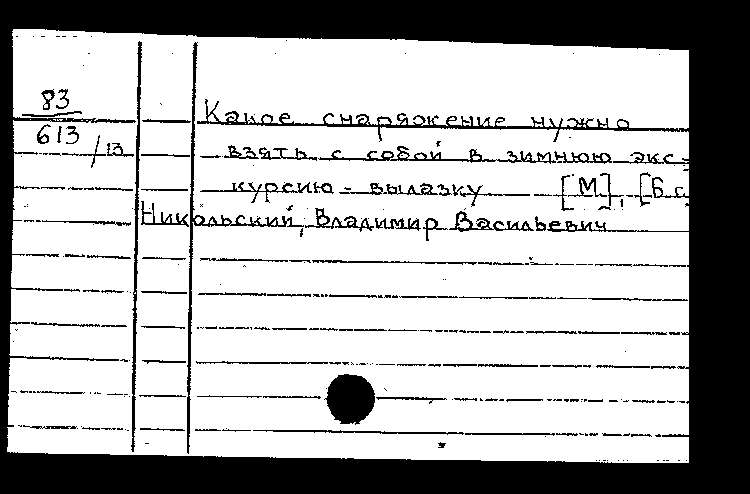 83
613/13
Какое снаряжение нужно
взять с собой в зимнюю экс-
курсию-вылазку [М], [Б.г.
Никольский, Владимир Васильевич